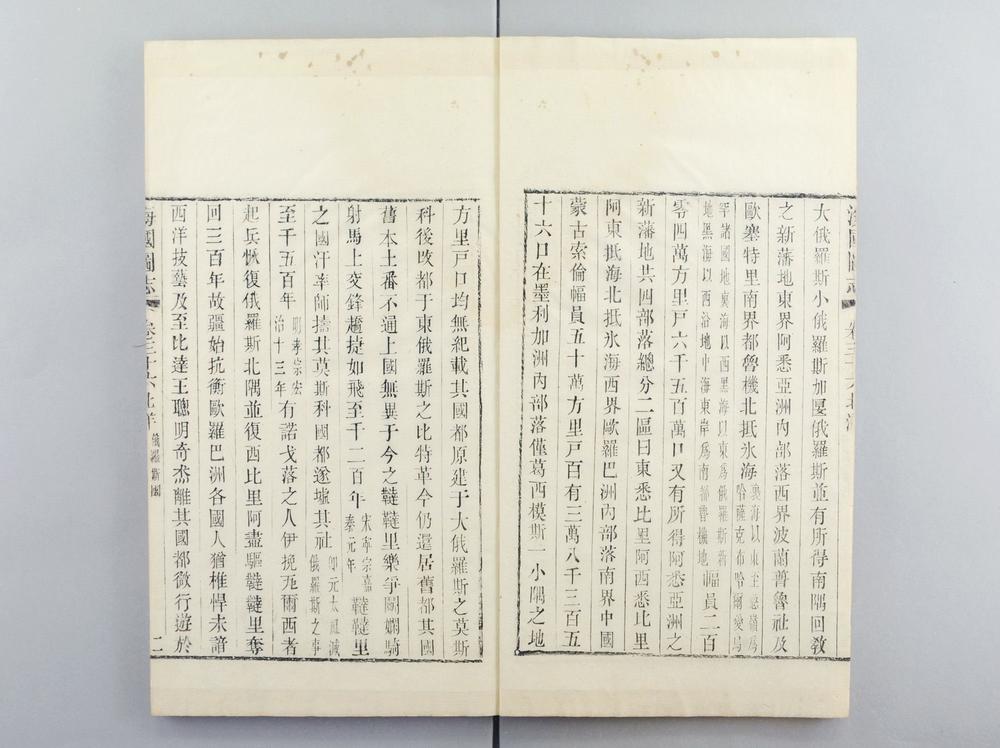 大俄羅斯小俄羅斯加匽俄羅斯並有所得南隅回教
之新藩地東界阿悉亞洲內部落西界波蘭普魯社及
歐塞特里南界都魯機北抵氷海裏海以東至葱嶺爲哈薩克布哈爾
罕諸國地裏海以西黑海以東爲俄羅斯新地黑海以西沿地中海東岸爲南都魯機地幅員二百
零四萬方里戸六千五百萬口又有所得阿悉亞洲之
新藩地共四部落總分二區曰東悉比里阿西悉比里
阿東抵海北抵氷海西界歐羅巴洲內部落南界中國
蒙古索倫幅員五十萬方里戸百有三萬八千三百五
十六口在墨利加洲內部落僅葛西模斯一小隅之地
方里戸口均無紀載其國都原建于大俄羅斯之莫斯
科後改都于東俄羅斯之比特革今仍還居舊都其國
舊本土番不通上國無異于今之韃韃里樂爭鬬嫻騎
射馬上交鋒趫捷如飛至千二百年宋寧宗嘉泰元年韃韃里
之國汗率師擣其莫斯科國都遂墟其社卽元太祖滅俄羅斯之事
至千五百年明孝宗宏治十三年有諾戈落之人伊挽瓦爾西者
起兵恢復俄羅斯北隅並復西比里阿盡驅韃韃里奪
回三百年故疆始抗衡歐羅巴洲各國人猶椎悍未諳
西洋技藝及至比達王聰明奇杰離其國都微行遊於
海國圖志 卷三十六北洋 俄羅斯國 二